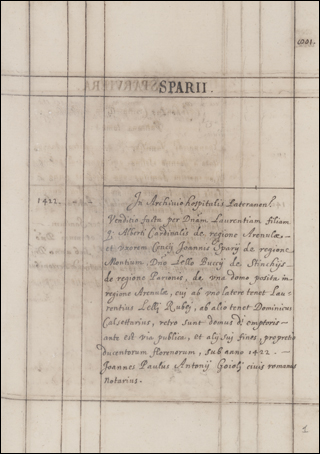 SPARII.
1422.
In Archivio hospitalis Lateranen.
Venditio facta per Dnam Laurentiam filiam
q. Alberti Cardinalis de regione Arenulæ,
et uxorem Joannis Sparij de regione
Montium Dno Lello Buccij de Stinchijs
de regione Parionis, de vna domo posita in
regione Arenulæ, cui ab vno latere tenet Lau-
rentius Lellij Rubej, ab alio tenet Dominicus
Calsettarius, retro sunt domus d. emptoris
ante est via publica, et alij sui fines, pro pretio
ducentorum florenorum, sub anno 1422.
Joannes Paulus Antonij civis romanus
notarius.
1